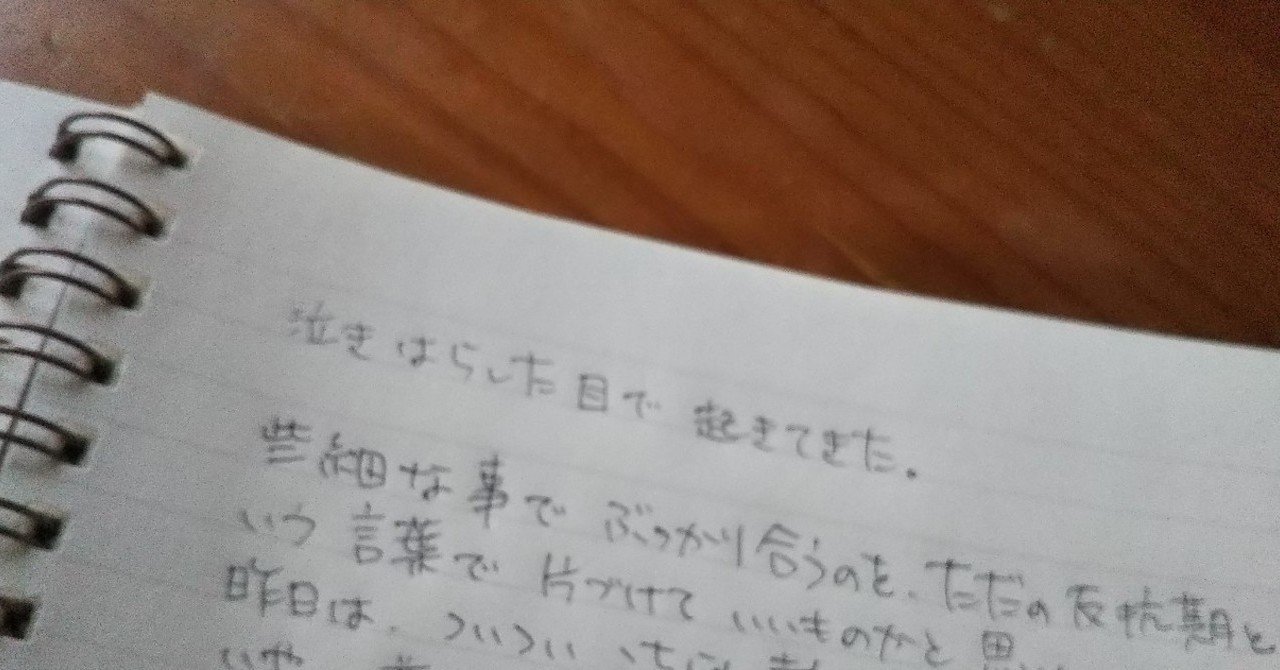 泣きはらした目で 起きてきた.
些細な事で ぶつかり合うのを、ただの反抗期と
いう 言葉で 片づけて いいものかと 思
昨日は、ついつい
いや